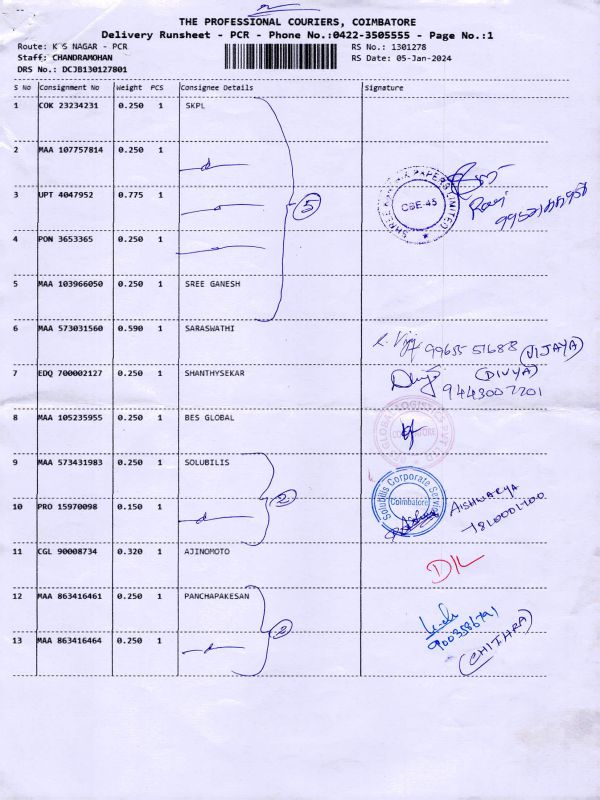 THE PROFESSIONAL COURIERS, COIMBATORE
Delivery Runsheet - PCR - Phone No.:0422-3505555 - Page No.:1
Route: K S NAGAR - PCR RS No.: 1301278
Staff: CHANDRAMOHAN RS Date: 05-Jan-2024
DRS No.: DCJB130127801
S No Consignment No Weight PCS Consignee Details Signature
1 COK 23234231 0.250 1 SKPL
2 MAA 107757814 0.250 1
3 UPT 4047952 0.775 1 5 CBE-45
4 PON 3653365 0.250 1
5 MAA 103966050 0.250 1 SREE GANESH
6 MAA 573031560 0.590 1 SARASWATHI
99655 51688 (VIJAYA)
7 EDQ 700002127 0.250 1 SHANTHYSEKAR (DIVYA)
9443007201
8 MAA 105235955 0.250 1 BES GLOBAL
9 MAA 573431983 0.250 1 SOLUBILIS
Solubilis Corporate Services Coimbatore
2 AISHWARYA
10 PRO 15970098 0.150 1
11 CGL 90008734 0.320 1 AJINOMOTO
12 MAA 863416461 0.250 1 PANCHAPAKESAN
2 9003586791
13 MAA 863416464 0.250 1 (CHITHRA)